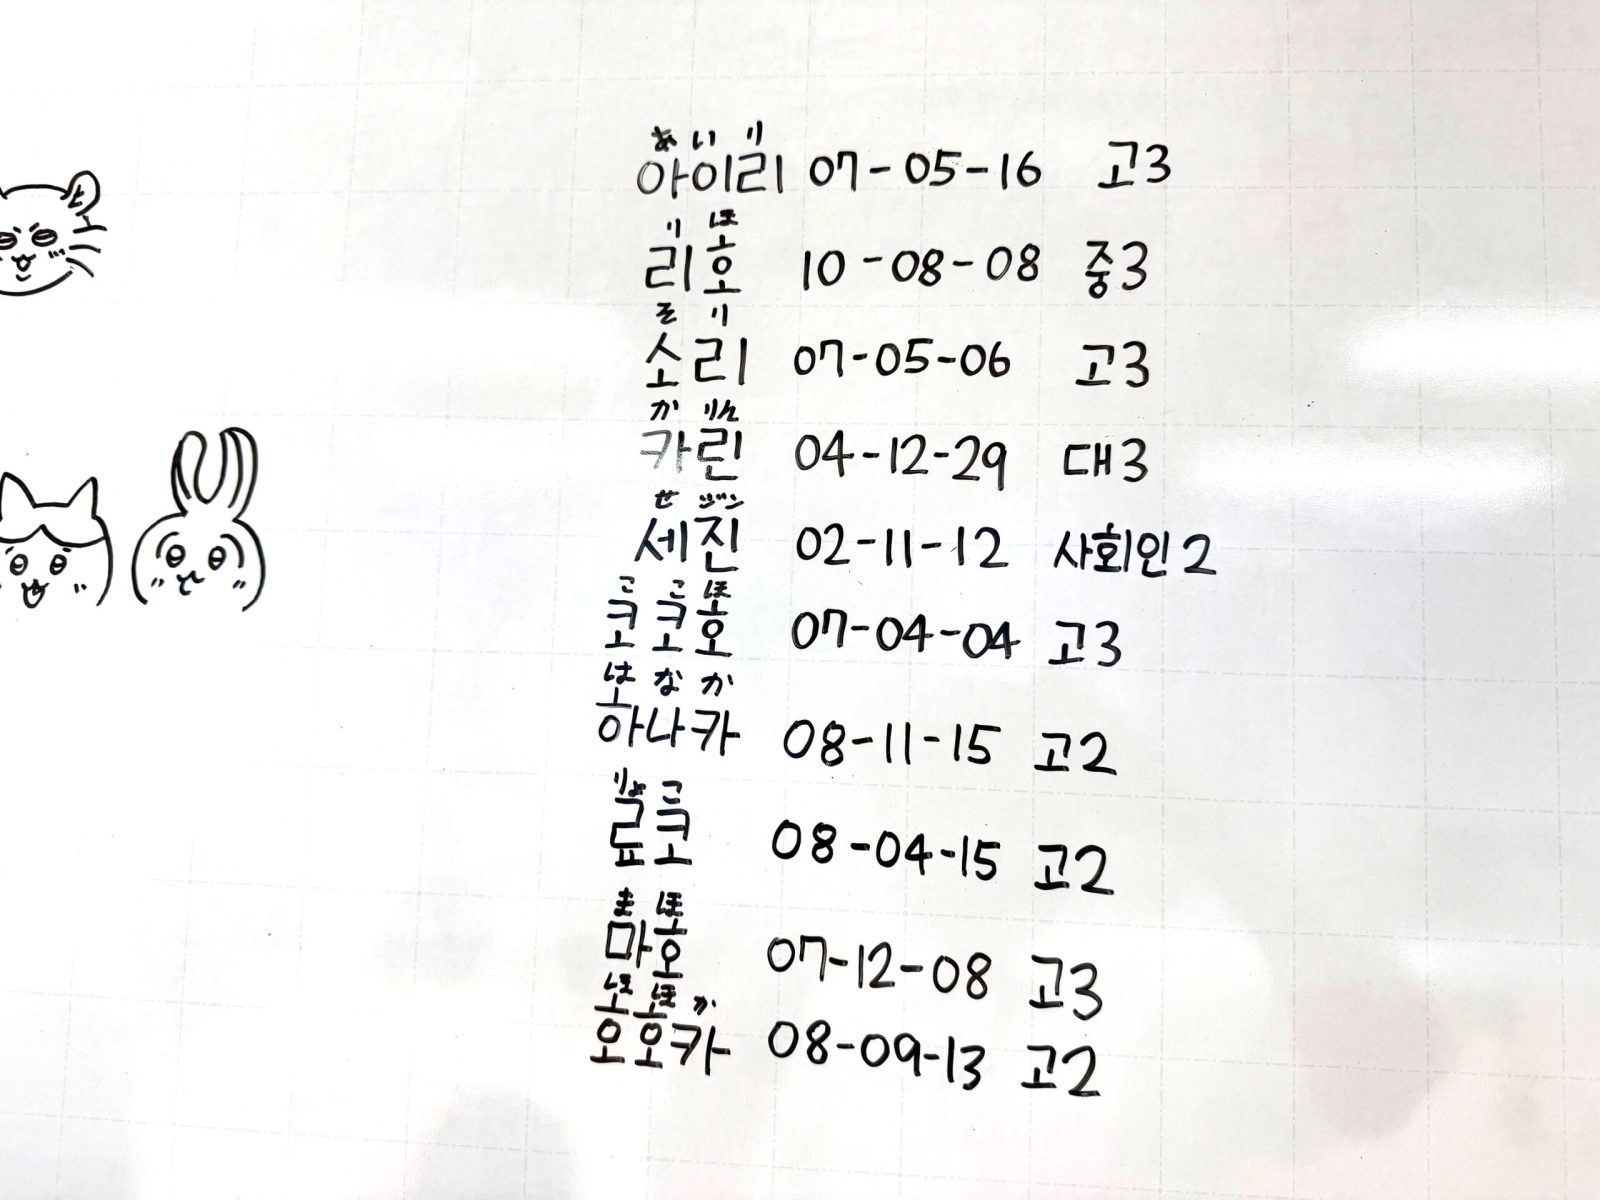 あ い り
아이리 07-05-16 고3
り ほ
리호 10-08-08 중3
そ り
소리 07-05-06 고3
か りん
카린 04-12-29 대3
せ ジン
세진 02-11-12 사회인2
こ こ ほ
코코호 07-04-04 고3
は な か
하나카 08-11-15 고2
りょ こ
료코 08-04-15 고2
ま ほ
마호 07-12-08 고3
ほ ほ か
호호카 08-09-13 고2